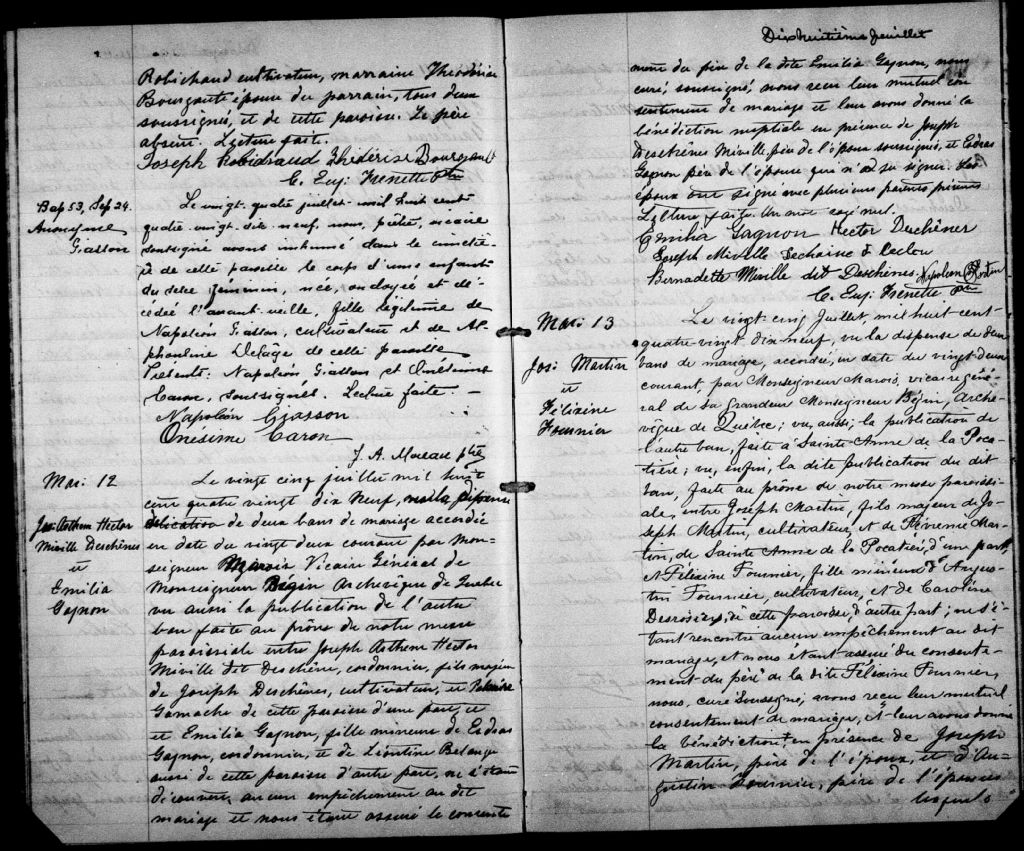 Robichaud cultivateur, marraine Théodérise
Bourgault épouse du parrain, tous deux
soussignés, et de cette paroisse. Le père
absent. Lecture faite.
Joseph Robichaud Thédérise Bourgault
C. Eug. Frenette Ptre
Bap 53, Sep 24.
Anonyme
Giasson
Le vingt-quatre juillet mil huit cent
quatre vingt dix neuf, nous, prêtre, vicaire
soussigné avons inhumé dans le cimetiè-
re de cette paroisse le corps d'une enfant
du sexe féminin, née, ondoyée et dé-
cédée l'avant-veille, fille légitime de
Napoléon Giasson, cultivateur et de Al-
phonsine Delâge de cette paroisse
Présents: Napoléon Giasson et Onésime
Caron, soussignés. Lecture faite. -
Napoléon Giasson
Onesime Caron
J. A. Moreau ptre
Mar. 12
Jos. Arthem Hector
Miville Deschênes
et
Emilia
Gagnon
Le vingt cinq juillet mil huit
cent quatre vingt dix neuf, vu la dispense
de deux bans de mariage accordée
en date du vingt deux courant par Mon-
seigneur Marois Vicaire Général de
Monseigneur Bégin Archevêque de Québec
vu aussi la publication de l'autre
ban faite au prône de notre messe
paroissiale entre Joseph Arthem Hector
Miville dit Deschêne, cordonnier, fils majeur
de Joseph Deschênes, cultivateur, et
Gamache de cette paroisse d'une part, et
et Emilia Gagnon, fille mineure de Esdras
Gagnon, cordonnier, et de Léontine Belanger
aussi de cette paroisse d'autre part, ne s'étant
découvert aucun empêchement au dit
mariage et nous étant assuré du consente
Dixhuitième feuillet
ment du père de la dite Emilia Gagnon, nous
curé, soussigné, nous reçu leur mutuel con
sentement de mariage et leur avons donné la
bénédiction nuptiale en présence de Joseph
Deschênes Miville père de l'époux soussigné, et Esdras
Gagnon père de l'épouse qui n'a su signer. Les
époux ont signé avec plusieurs parents présents
Lecture faite. Un mot rayé nul.
Emilia Gagnon Hector Deschêner
Joseph Miville Dechaine
Bernadette Miville dit Deschênes. Napoleon
C. Eug. Frenette Ptre
Mar. 13
Jos: Martin
et
Félixine
Fournier
Le vingt-cinq Juillet, mil huit cent-
quatre-vingt dix-neuf, vu la dispense de deux
bans de mariage, accordée, en date du vingt-deux
courant, par Monseigneur Marois, vicaire géné-
ral de Sa Grandeur Monseigneur Bégin, Arche-
vêque de Québec; vu, aussi, la publication de
l'autre ban, faite à Sainte-Anne de la Poca-
tière; vu, enfin, la dite publication du dit
ban, faite au prône de notre messe paroissi-
ale, entre Joseph Martin, fils majeur de Jo-
seph Martin, cultivateur, et de Mar-
tin, de Sainte Anne de la Pocatière, d'une part,
et Félixine Fournier, fille mineure d'Augus-
tin Fournier, cultivateur, et de Caroline
Desrosiers, de cette paroisse, d'autre part; ne s'é-
tant rencontré aucun empêchement au dit
mariage, et nous étant assuré du consente-
ment du père de la dite Félixine Fournier,
nous, curé soussigné, avons reçu leur mutuel
consentement de mariage, et leur avons donné
la bénédiction en présence de Joseph
Martin, père de l'époux, et d'Au-
gustin Fournier, père de l'épouse
lesquels